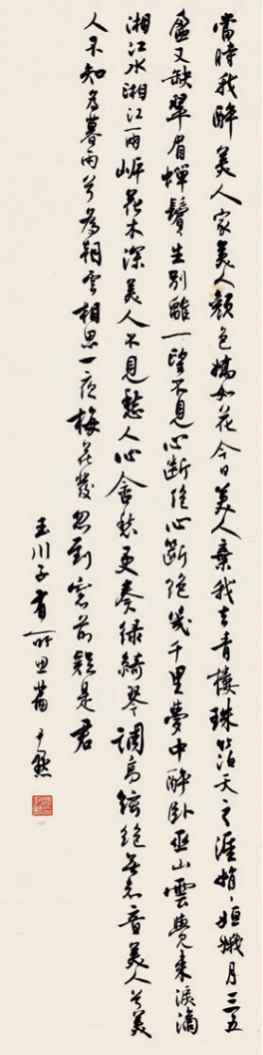 當時我醉美人家美人顏色嬌如花今日美人棄我去青樓珠箔天之涯娟娟姮娥月三五
盈又缺翠眉蟬鬢生別離一望不見心斷絕心斷絕幾千里夢中醉臥巫山雲覺來淚滴
湘江水湘江兩岸花木深美人不見愁人心含愁更奏綠綺琴調高絃絕無知音美人兮美
人不知為暮雨兮為朝雲相思一夜梅花發忽到窗前疑是君
玉川子有所思篇 尹默